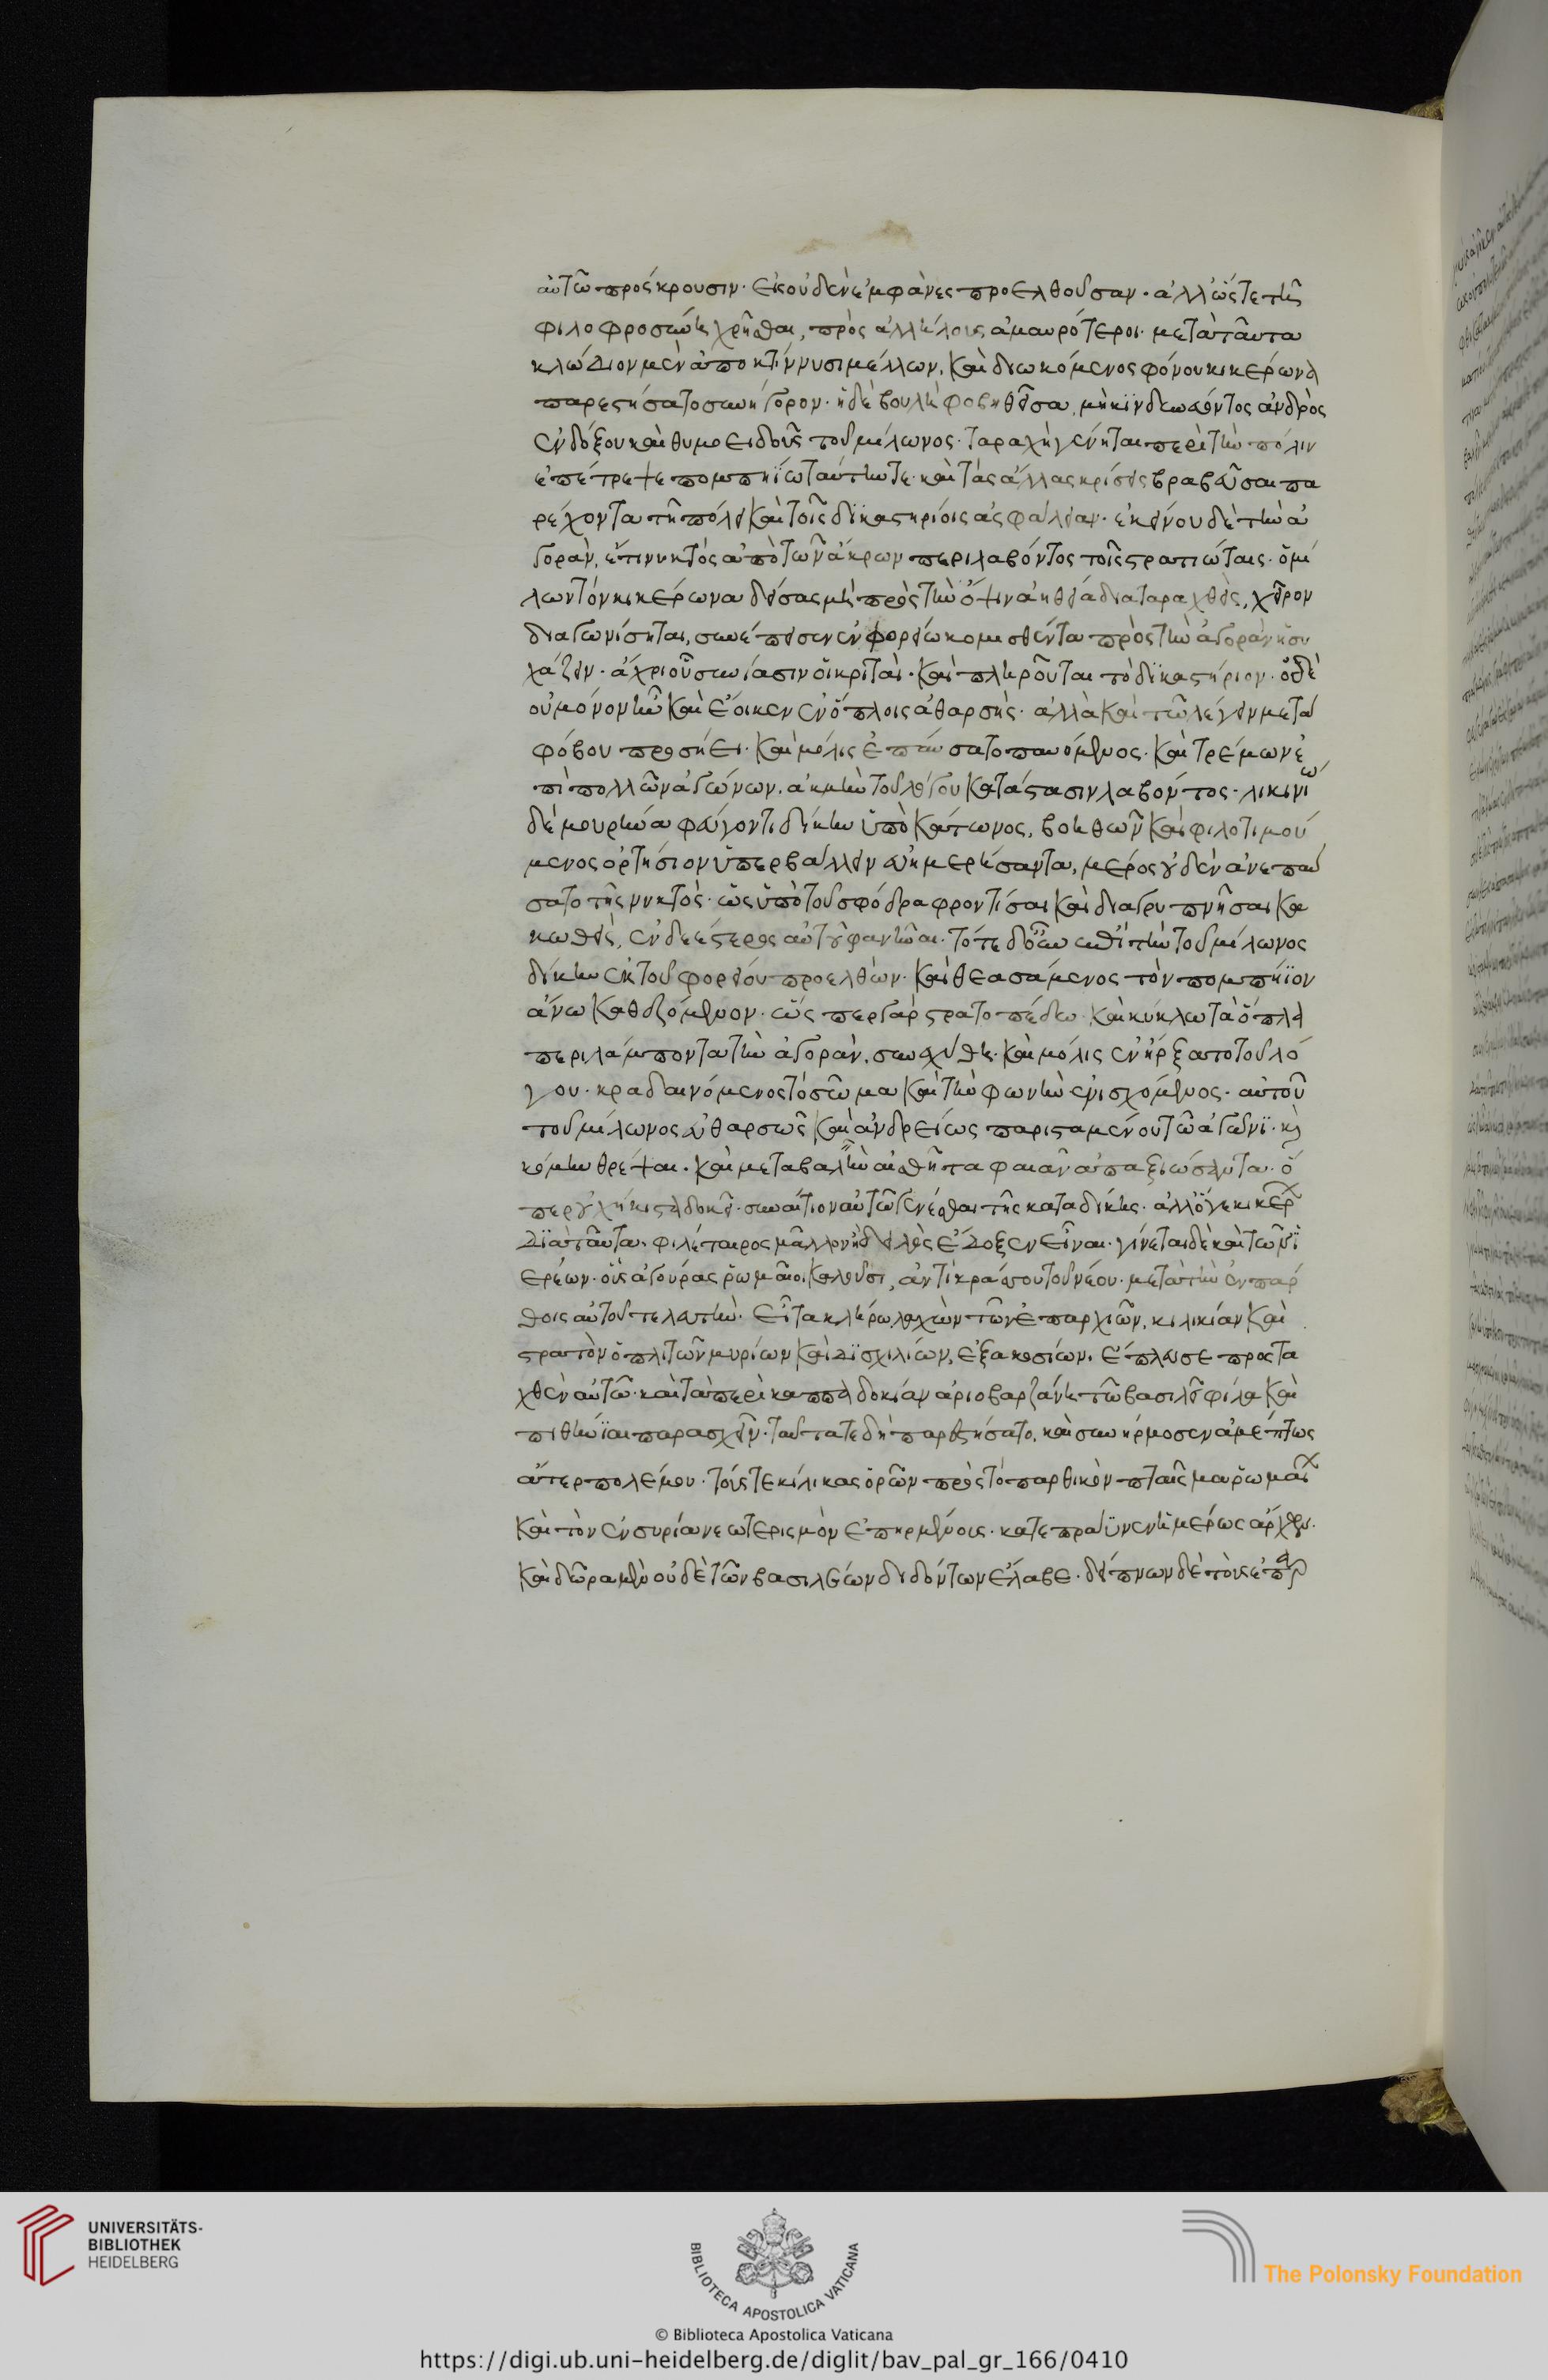 αὐτῶ πρόσκρουσιν· εἰς οὐδὲν ἐμφανὲς προελθοῦσαν· ἀλλ' ὥστε τῆς
φιλοφροσύνης χρῆσθαι, πρὸς ἀλλήλους ἀμαυρότεροι· μετὰ ταῦτα
κλώδιον μὲν ἀποκτίννυσι μέλλων, καὶ διωκόμενος φόνου κικέρωνα
παρεστήσατο συνήγορον· ἡ δὲ βουλὴ φοβηθεῖσα, μὴ κϊνδυνεύοντος ἀνδρὸς
ἐνδόξου καὶ θυμοειδοῦς τοῦ μίλωνος· ταραχὴ γένηται περὶ τὴν πόλιν
ἐπέτρεψε πομπηΐω ταύτην τε καὶ τὰς ἄλλας κρίσεις βραβεῦσαι πα
ρέχοντα τῆ πόλει καὶ τοῖς δϊκαστηρίοις ἀσφάλειαν· ἐκείνου δὲ τὴν ἀ
γορὰν, ἔτι νυκτὸς ἀπὸ τῶν ἄκρων περιλαβόντος τοῖς στρατιώταις· ὁ μί
λων τὸν κικέρωνα δείσας μὴ πρὸς τὴν ὄψιν ἀηθείᾳ διαταραχθεὶς, χεῖρον
διαγωνίσηται, συνέπεισεν ἐν φορείω κομισθέντα πρὸς τὴν ἀγορὰν ἡσυ
χάζειν· ἄχρι οὗ συνίασιν οἱ κριταὶ· καὶ πληροῦται τὸ δϊκαστήριον· ὁ δὲ
οὐ μόνον ἦν καὶ ἔοικεν ἐν ὅπλοις ἀθαρσὴς· ἀλλὰ καὶ τῶ λέγειν μετὰ
φόβου προσήει· καὶ μόλις ἐπαύσατο παυόμενος· καὶ τρέμων ἐ
πὶ πολλῶν ἀγώνων. ἀκμὴν τοῦ λόγου κατάστασιν λαβόντος· λικινίω
δὲ μουρήνα φεύγοντι δίκην ὑπὸ κάτωνος, βοηθῶν καὶ φιλοτιμού
μενος ὁρτήσιον ὑπερβάλλειν εὐημερήσαντα, μέρος οὐδὲν ἀνεπαύ
σατο τῆς νυκτὸς· ὡς ὑπὸ τοῦ σφόδρα φροντίσαι καὶ διαγρυπνῆσαι κα
κωθεὶς, ἐνδεέστερος αὐτοῦ φανῆναι. τότε δ' οὖν ἐπὶ τὴν τοῦ μίλωνος
δίκην ἐκ τοῦ φορείου προελθὼν· καὶ θεασάμενος τὸν πομπήϊον
ἄνω καθεζόμενον· ὥσπερ γὰρ στρατοπέδω καὶ κύκλω τὰ ὅπλα
περιλάμποντα τὴν ἀγορὰν, συνεχύθη· καὶ μόλις ἐνήρξατο τοῦ λό
γου· κραδαινόμενος τὸ σῶμα καὶ τὴν φωνὴν ἐνισχόμενος· αὐτοῦ
τοῦ μίλωνος εὐθαρσῶς καὶ ἀνδρείως παρισταμένου τῶ ἀγῶνϊ· καὶ
κόμην θρέψαι· καὶ μεταβαλεῖν ἐσθῆτα φαιὰν ἀπαξιώσαντα· ὅ
περ οὐχ ἥκιστα δοκεῖ· συναίτιον αὐτῶ γενέσθαι τῆς καταδίκης· ἀλλ' ὅ γε κικέρ
διὰ ταῦτα φιλέταιρος μᾶλλον ἢ δειλὸς ἔδοξεν εἶναι· γίνεται δὲ καὶ τῶν ἱ
ερέων· οὓς ἀγούρας ῥωμαῖοι καλοῦσι, ἀντὶ κράσσου τοῦ νέου· μετὰ τὴν ἐν πάρ
θοις αὐτοῦ τελευτὴν. εἶτα κλήρω λαχὼν τῶν ἐπαρχιῶν, κιλικίαν καὶ
στρατὸν ὁπλιτῶν μυρίων καὶ δϊσχιλίων, ἑξακοσίων· ἔπλευσε προστα
χθὲν αὐτῶ καὶ τὰ περὶ καππαδοκίαν ἀριοβαρζάνη τῶ βασιλεῖ φίλα καὶ
πειθήνϊα παρασχεῖν· ταῦτα τε δὴ παρεστήσατο, καὶ συνήρμοσεν ἀμέμπτως
ἄτερ πολέμου· τούς τε κίλικας ὁρῶν πρὸς τὸ παρθικὸν πταῖσμα ῥωμαί
καὶ τὸν ἐν συρία νεωτερισμὸν ἐπηρμένους· κατεπράϋνεν ἡμέρως ἄρχων.
καὶ δῶρα μὲν οὐδὲ τῶν βασιλέων διδόντων ἔλαβε· δείπνων δὲ τοὺς ἐπαρ
UNIVERSITÄTS-
BIBLIOTHEK
HEIDELBERG
BIBLIOTECA APOSTOLICA VATICANA
The Polonsky Foundation
© Biblioteca Apostolica Vaticana
https://digi.ub.uni-heidelberg.de/diglit/bav_pal_gr_166/0410